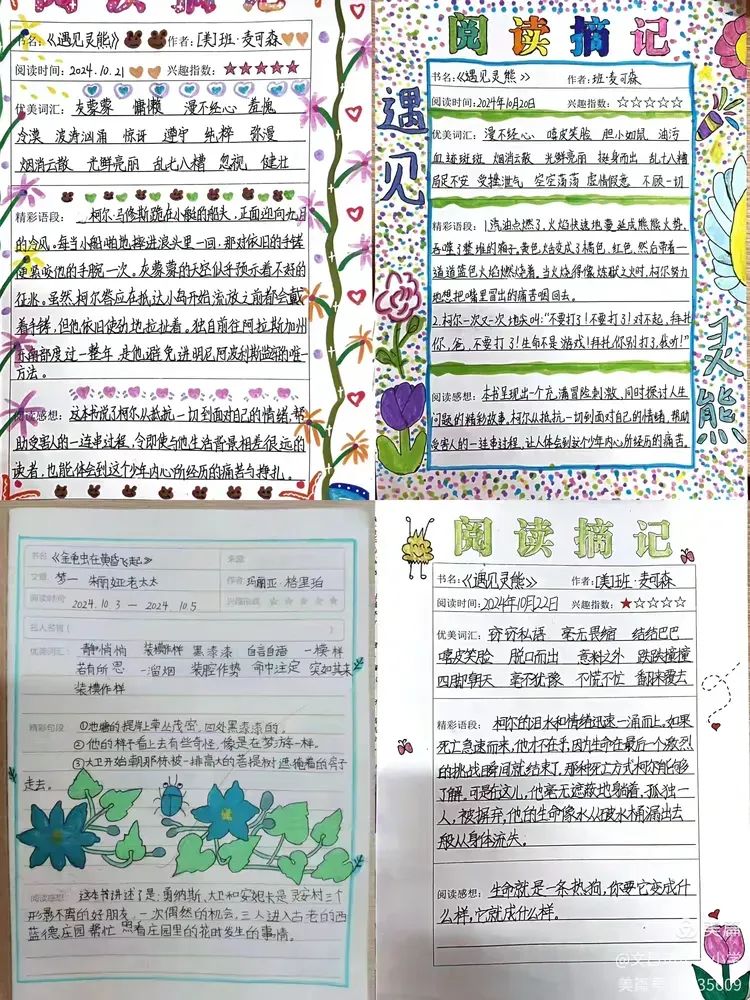 阅读摘记
书名:《遇见灵熊》 作者:[美]班·麦可森
阅读时间:2024.10.21 兴趣指数:
优美词汇: 灰蒙蒙 慵懒 漫不经心 羞愧
冷漠 波涛汹涌 惊讶 遵守 纯粹 弥漫
烟消云散 光鲜亮丽 乱七八糟 忽视 健壮
精彩语段: 柯尔·马修斯跪在小艇的船头,正面迎向九月
的冷风。每当小船啪地撞进浪头里一回,那对依旧的手铐
便紧咬他的手腕一次。灰蒙蒙的天空似乎预示着不好的
征兆。虽然柯尔答应在抵达小岛开始流放之前都会戴
着手铐,但他依旧使劲地拉扯着。独自前往阿拉斯加州
东南部度过一整年,是他避免进明尼阿波利斯监狱的唯一
方法。
阅读感想: 这本书说了柯尔从抵抗一切到面对自己的情绪,帮
助受害人的一连串过程,令即使与他生活背景相差很远的
读者,也能体会到这个少年内心所经历的痛苦与挣扎。
阅读摘记
遇见
灵熊
书名:《遇见灵熊》 作者:班·麦可森
阅读时间:2024年10月20日 兴趣指数:☆☆☆☆☆
优美词汇: 漫不经心 嘻皮笑脸 胆小如鼠 油污
血迹斑斑 烟消云散 光鲜亮丽 挺身而出 乱七八糟
局促不安 受挫泄气 空空荡荡 虚情假意 不顾一切
精彩语段: 1.汽油点燃了,火焰快速地蔓延成熊熊大势,
吞噬了整堆的箱子,黄色火焰变成了橘色、红色,然后带着一
道道蓝色火焰燃烧着,当火烧得像炼狱之火时,柯尔努力
地想把嘴里冒出的痛苦咽回去。
2.柯尔一次又一次地尖叫:“不要打了!不要打了!对不起,拜托
你,爸,不要打了!生命不是游戏!拜托你别打我力!”
阅读感想: 本书呈现出一个充满冒险刺激、同时探讨人生
问题的精彩故事,柯尔从抵抗一切到面对自己的情绪,帮助
受害人的一连串过程,让人体会到这个少年内心所经历的痛苦。
书名:《金龟虫在黄昏飞起》 来源:
文章: 梦一 朱丽娅老太太 作者:玛丽亚·格里珀
阅读时间: 2024.10.3 — 2024.10.5 兴趣指数:
名人名言(
优美词汇: 静悄悄 装模作样 黑漆漆 自言自语 一模一样
若有所思 一溜烟 装腔作势 命中注定 突如其来
装模作样
精彩句段: ①池塘的堤岸上草丛茂密,四处黑漆漆的。
②他的样子看上去有些奇怪,像是在梦游一样。
③大卫开始朝那栋被一排高大的菩提树遮掩着的房子
走去。
阅读感想: 这本书讲述了是:勇纳斯、大卫和安妮卡是灵安村三个
形影不离的好朋友,一次偶然的机会,三人进入古老的西
蓝德庄园帮忙照看庄园里的花时发生的事情。
阅读摘记
书名:《遇见灵熊》 作者:[美]班·麦可森
阅读时间:2024年10月22日 兴趣指数:★☆☆☆☆
优美词汇: 窃窃私语 毫无畏缩 结结巴巴
嘻皮笑脸 脱口而出 意料之外 跌跌撞撞
四脚朝天 毫不犹豫 不慌不忙 翻来覆去
精彩语段: 柯尔的泪水和情绪迅速一涌而上。如果
死亡急速而来,他才不在乎,因为生命在最后一个激烈
的挑战瞬间就结束了。那种死亡方式柯尔能够
了解。可是在这儿,他毫无遮蔽地躺着,孤独一
人,被摒弃,他的生命像水从破水桶漏出去
般从身体流失。
阅读感想: 生命就是一条热狗,你要它变成什
么样,它就成什么样。
美篇